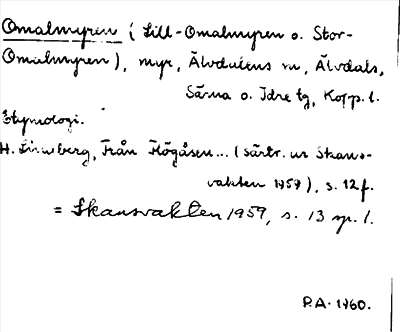 Omalmyren (Lill-Omalmyren o. Stor-
Omalmyren), myr, Älvdalens sn, Älvdals,
Särna o. Idre tg, Kopp. l.
Etymologi.
H. Linnberg, Från Högåsen... (särtr. ur Skans-
vakten 1959), s. 12 f.
= Skansvakten 1959, s. 13 sp. 1.
P.A. 1960.